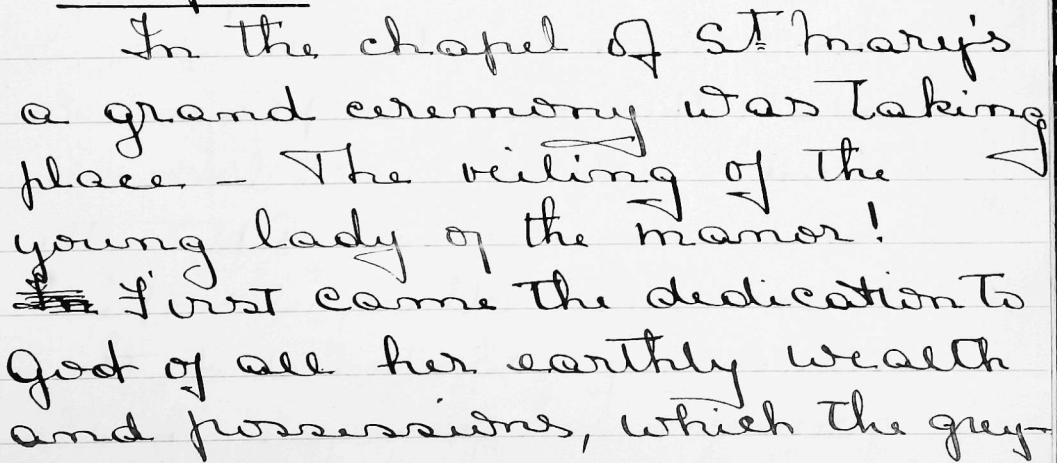 In the chapel of St. Mary's
a grand ceremony was taking
place - The veiling of the
young lady of the manor!
First came the dedication to
God of all her earthly wealth
and possessions, which the grey-